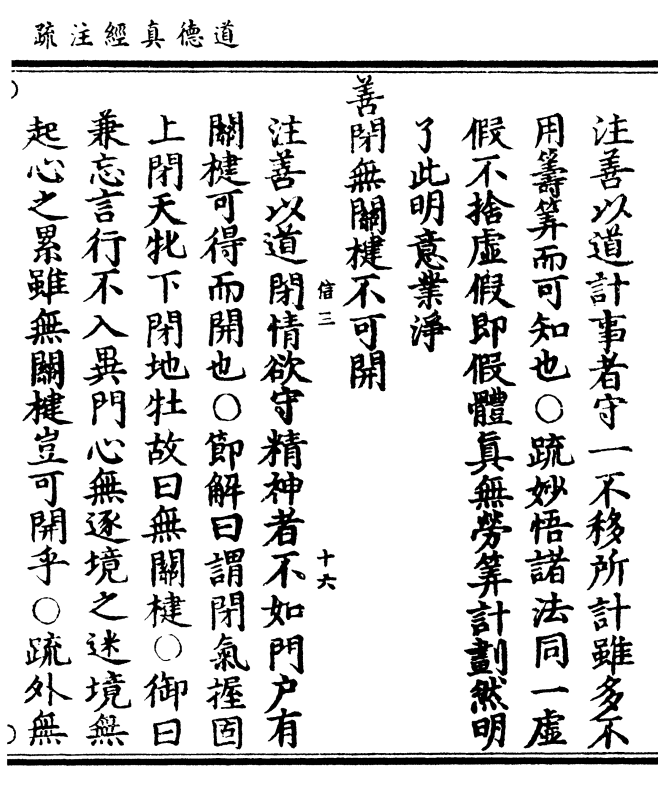 道德真經注疏
注善以道計事者守一不移所計雖多不
用籌筭而可知也〇疏妙悟諸法同一虛
假不捨虛假即假體真無勞筭計劃然明
了此明意業淨
善閉無關楗不可開
信三
十六
注善以道閉情欲守精神者不如門户有
關楗可得而開也〇節解曰謂閉氣握固
上閉天牝下閉地牡故曰無關楗〇御曰
兼忘言行不入異門心無逐境之迷境無
起心之累雖無關楗豈可開乎〇疏外無